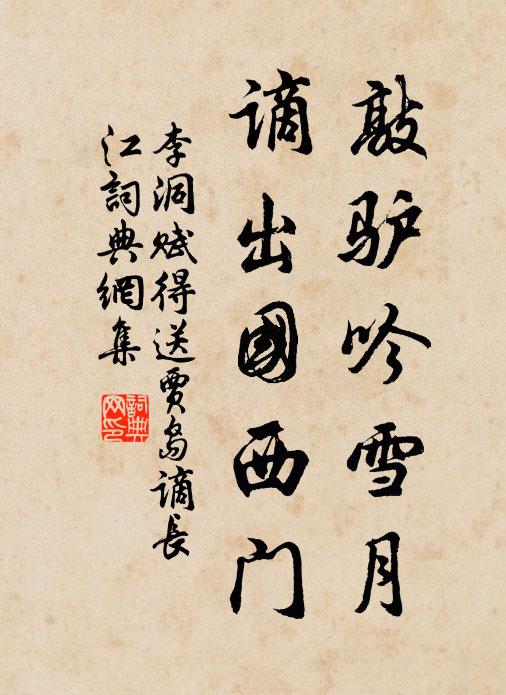 敲驴吟雪月
谪出國西门
李洞赋得送贾岛谪長
江詞典網集
詞典
网印